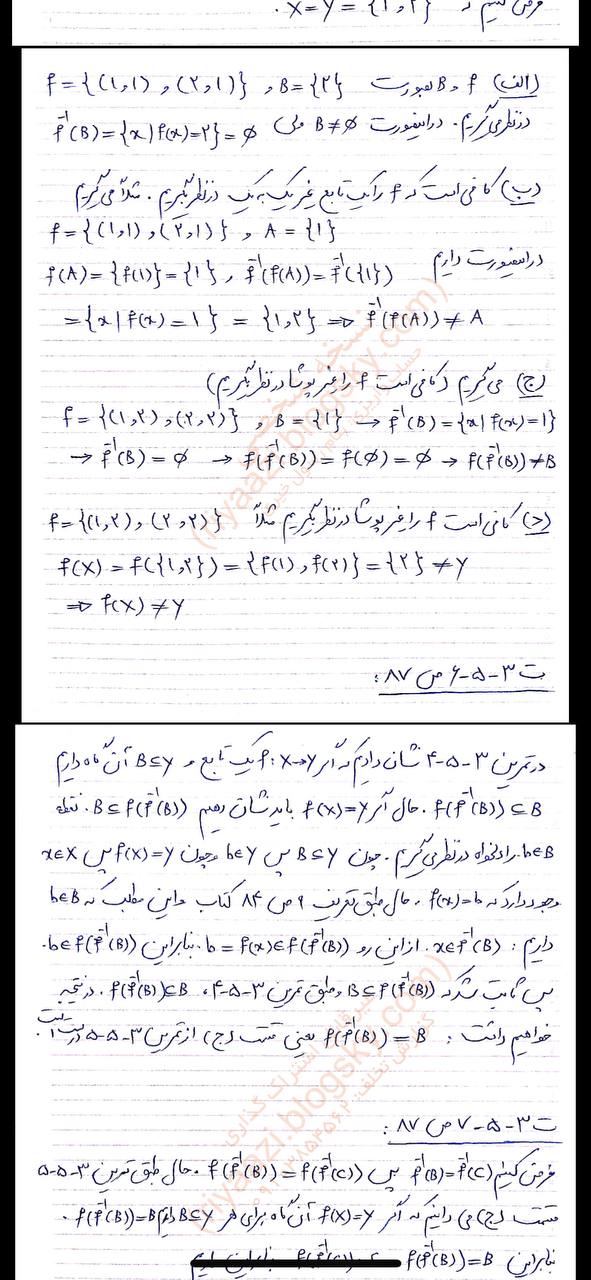 فرض کنیم که X=Y={1,2}.
(الف) f و B بصورت B={۲} , f={(۱,۱) , (۲,۱)}
درنظر می گیریم. دراینصورت B≠∅ ولی f⁻¹(B)={x|f(x)=۲}=∅
(ب) کافی است که f را یک تابع غیر یک به یک درنظر بگیریم. مثلاً می گیریم
f={(۱,۱) , (۲,۱)} , A={۱}
دراینصورت داریم f(A)={f(۱)}={۱} , f⁻¹(f(A))=f⁻¹({۱})
={x|f(x)=۱}={۱,۲} ⇒ f⁻¹(f(A))≠A
(ج) می گیریم (کافی است f را غیر پوشا درنظر بگیریم)
f={(۱,۲) , (۲,۲)} , B={۱} → f⁻¹(B)={x|f(x)=۱}
→ f⁻¹(B)=∅ → f(f⁻¹(B))=f(∅)=∅ → f(f⁻¹(B))≠B
(د) کافی است f را غیر پوشا درنظر بگیریم مثلاً f={(۱,۲) , (۲,۲)}
f(X)=f({۱,۲})={f(۱) , f(۲)}={۲}≠Y
⇒ f(X)≠Y
ت ۳-۵-۶ ص ۸۷:
درتمرین ۳-۵-۴ نشان دادیم که اگر f:X→Y یک تابع و B⊆Y آن گاه داریم
f(f⁻¹(B))⊆B. حال اگر f(X)=Y باید نشان دهیم B⊆f(f⁻¹(B)). نقطه
b∈B را دلخواه درنظر می گیریم. چون B⊆Y پس b∈Y و چون f(X)=Y پس x∈X
وجود دارد که f(x)=b. حال طبق تعریف ۹ ص ۸۴ کتاب و این مطلب که b∈B
داریم: x∈f⁻¹(B). از این رو b=f(x)∈f(f⁻¹(B)) بنابراین b∈f(f⁻¹(B)).
پس ثابت شد که B⊆f(f⁻¹(B)) و طبق تمرین ۳-۵-۴، f(f⁻¹(B))⊆B. درنتیجه
خواهیم داشت: f(f⁻¹(B))=B یعنی قسمت (ج) از تمرین ۳-۵-۵ درست است.
ت ۳-۵-۷ ص ۸۷:
فرض کنیم f⁻¹(B)=f⁻¹(C) پس f(f⁻¹(B))=f(f⁻¹(C)). حال طبق تمرین ۳-۵-۵
قسمت (ج) می دانیم که اگر f(X)=Y آن گاه برای هر B⊆Y داریم f(f⁻¹(B))=B.
بنابراین f(f⁻¹(B))=B
(riyaazi.blogsky.com)
(riyaazi.blogsky.com)